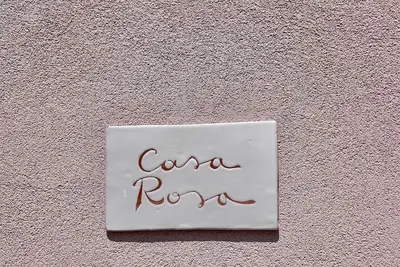 Casa
Rosa